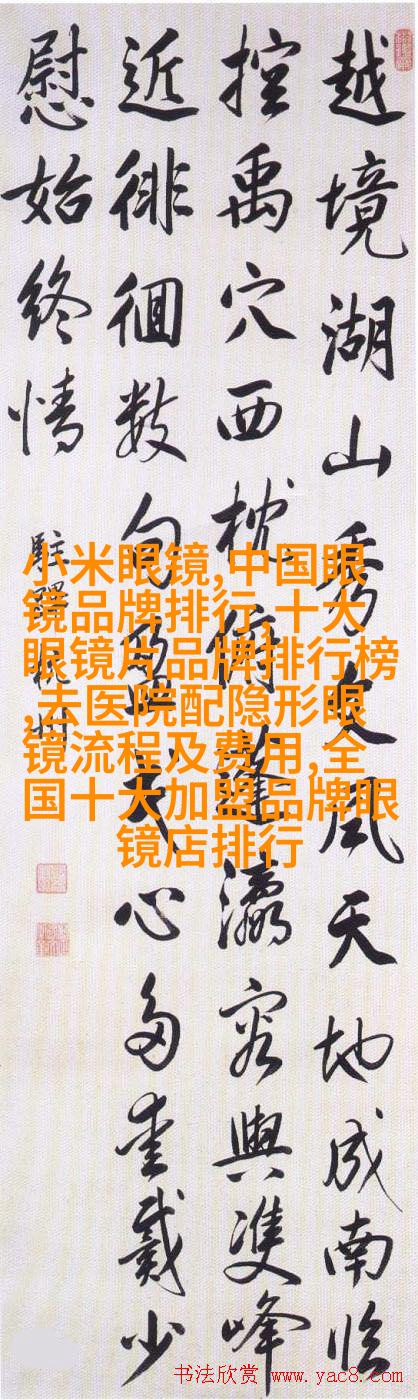 越境湖山秀文風天地成南临
控禹穴西枕俯蓬瀛容與雙峰
近徘徊数旬盈民心多愛戴少
慰始終情
駐蹕杭州
小米眼镜,中国眼
镜品牌排行,十大
眼镜片品牌排行榜
,去医院配隐形眼
镜流程及费用,全
国十大加盟品牌眼
镜店排行
书法欣赏 www.yac8.com